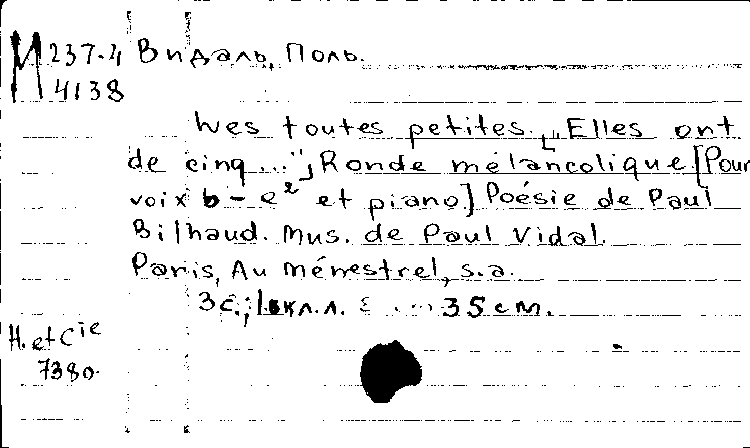 М 237-4 Видаль, Поль.
4138
Les toutes petites. „Elles ont
de cinq...", Ronde mélancolique [Pour
voix b - e² et piano] Poésie de Paul
Bilhaud. Mus. de Paul Vidal.
Paris, Au ménestrel, s.a.
3с., 1 вкл.л. 35 см.
H. et Cie
7380.